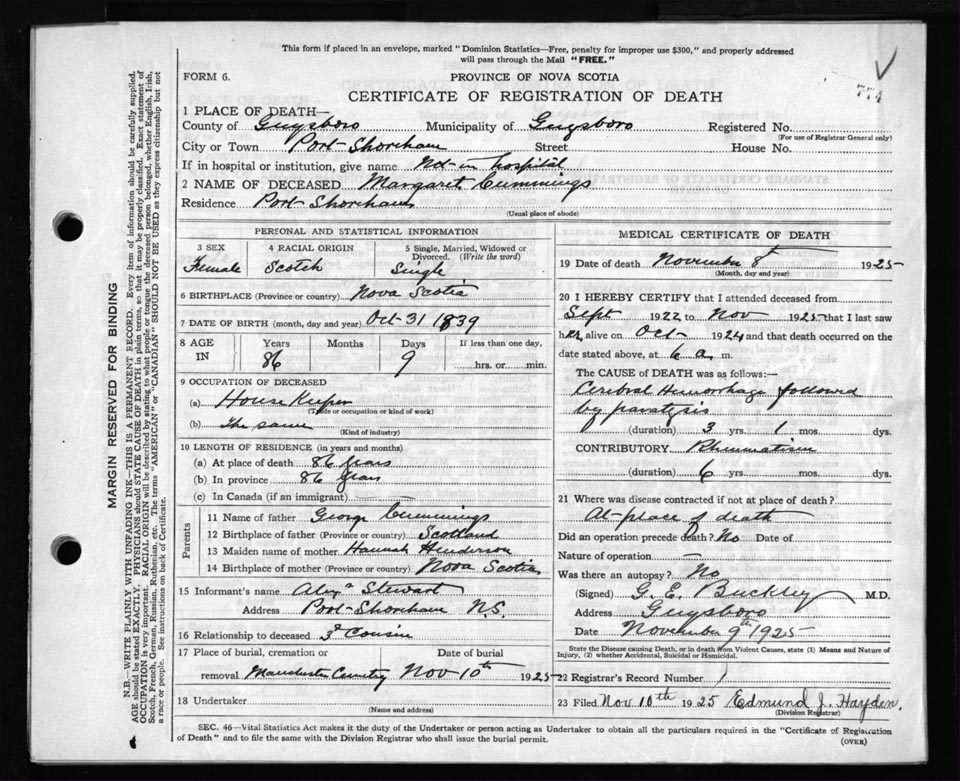 This form if placed in an envelope, marked "Dominion Statistics—Free, penalty for improper use $300," and properly addressed
will pass through the Mail "FREE."
FORM 6.
PROVINCE OF NOVA SCOTIA
774
CERTIFICATE OF REGISTRATION OF DEATH
1 PLACE OF DEATH—
County of Guysboro Municipality of Guysboro Registered No.
(For use of Registrar General only)
City or Town Port Shoreham Street House No.
If in hospital or institution, give name Not in hospital
2 NAME OF DECEASED Margaret Cummings
Residence Port Shoreham
(Usual place of abode)
PERSONAL AND STATISTICAL INFORMATION
3 SEX 4 RACIAL ORIGIN 5 Single, Married, Widowed or
Divorced. (Write the word)
Female Scotch Single
6 BIRTHPLACE (Province or country) Nova Scotia
7 DATE OF BIRTH (month, day and year) Oct 31 1839
8 AGE Years Months Days If less than one day,
IN 86 9 hrs. or min.
9 OCCUPATION OF DECEASED
(a) House Keeper
(Trade or occupation or kind of work)
(b) The same
(Kind of industry)
10 LENGTH OF RESIDENCE (in years and months)
(a) At place of death 86 years
(b) In province 86 years
(c) In Canada (if an immigrant)
Parents
11 Name of father George Cummings
12 Birthplace of father (Province or country) Scotland
13 Maiden name of mother Hannah Henderson
14 Birthplace of mother (Province or country) Nova Scotia
15 Informant's name Alexr Stewart
Address Port Shoreham N.S.
16 Relationship to deceased 3d Cousin
17 Place of burial, cremation or Date of burial
removal Manchester Cemetry Nov 10th 1925
18 Undertaker
(Name and address)
MEDICAL CERTIFICATE OF DEATH
19 Date of death November 8th 1925
(Month, day and year)
20 I HEREBY CERTIFY that I attended deceased from
Sept 1922 to Nov 1925 that I last saw
her alive on Oct 1924 and that death occurred on the
date stated above, at 6 a. m.
The CAUSE of DEATH was as follows:—
Cerebral Hemorrhage followed
by paralysis
(duration) 3 yrs. 1 mos. dys.
CONTRIBUTORY Rheumatism
(duration) 6 yrs. mos. dys.
21 Where was disease contracted if not at place of death?
At place of death
Did an operation precede death? No Date of
Nature of operation —
Was there an autopsy? No
(Signed) G. E. Buckley M.D.
Address Guysboro
Date November 9th 1925
State the Disease causing Death, or in death from Violent Causes, state (1) Means and Nature of
Injury, (2) whether Accidental, Suicidal or Homicidal.
22 Registrar's Record Number 1
23 Filed Nov 10th 1925 Edmund J. Hayden.
(Division Registrar)
SEC. 46—Vital Statistics Act makes it the duty of the Undertaker or person acting as Undertaker to obtain all the particulars required in the "Certificate of Registration
of Death" and to file the same with the Division Registrar who shall issue the burial permit.
(OVER)
MARGIN RESERVED FOR BINDING
N.B.—WRITE PLAINLY WITH UNFADING INK—THIS IS A PERMANENT RECORD. Every item of information should be carefully supplied.
AGE should be stated EXACTLY. PHYSICIANS should STATE CAUSE OF DEATH in plain terms, so that it may be properly classified. Exact statement of
OCCUPATION is very important. RACIAL ORIGIN will be described by stating to what people or tongue the deceased person belonged, whether English, Irish,
Scotch, French, German, Russian, Ruthenian, etc. The terms "AMERICAN" or "CANADIAN" SHOULD NOT BE USED as they express citizenship but not
a race or people. See instructions on back of Certificate.